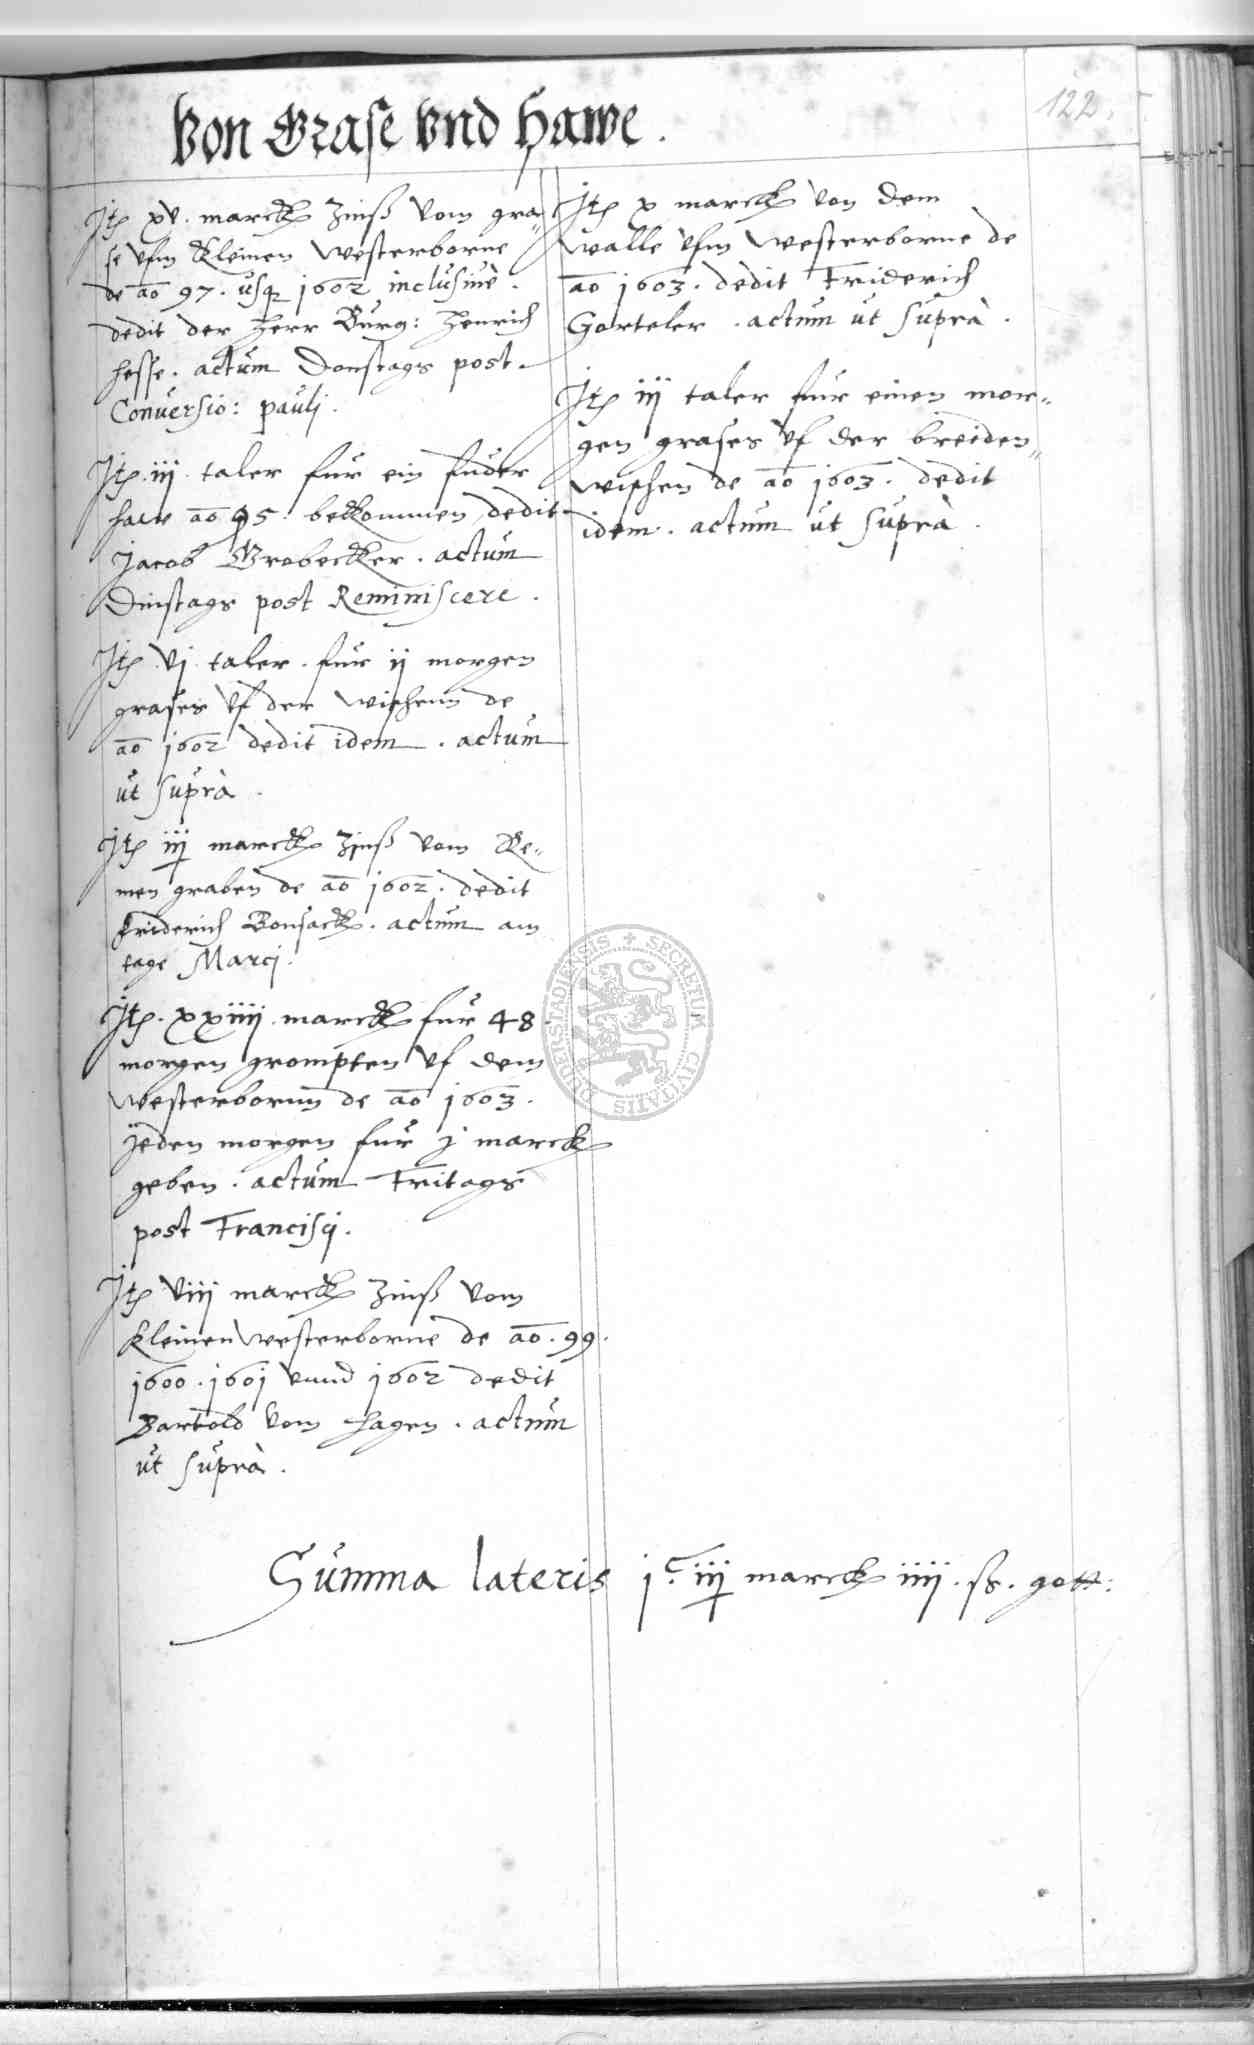 122.
Von Grase vnd Hawe.
Jtem xv. marck Zinß vom gra„
se vfm Kleinen Westerborne
de ao 97. usq 1602 inclusiuè.
dedit der Herr Burg: Henrich
Hesse. actum Donstags post
Conuersio: pauli.
Jtem iij taler fur ein fuder
hawe ao 95. bekommen dedit
Jacob Grobecker. actum
Dinstags post Reminiscere.
Jtem vj. taler. fur ij morgen
grases vf der wishenn de
ao 1602 dedit idem. actum
ut suprà.
Jtem iij marck Zinß vom Re„
men graben de ao 1602. dedit
Friderich Bonsack. actum am
tage Marci.
Jtem. xxiiij. marck fur 48
morgen grompten vf dem
Westerbornn de ao 1603.
Jeden morgen fur j marck
geben. actum Fritags
post Francisci.
Jtem viij marck Zinß vom
Kleinen Westerborne de ao. 99.
1600. 1601 vnnd 1602 dedit
Bartold vom Hagen. actum
ut suprà.
Jtem x marck von dem
walle vfm Westerborne de
ao 1603. dedit Friderich
Gorteler. actum ut suprà.
Jtem iij taler fur einen mor„
gen grases vf der breiden„
wishen de ao 1603. dedit
idem. actum ut suprà.
Summa lateris jc. iij marck iiij. ß. gott:
SECRETUM CIVITATIS DUDERSTADIENSIS